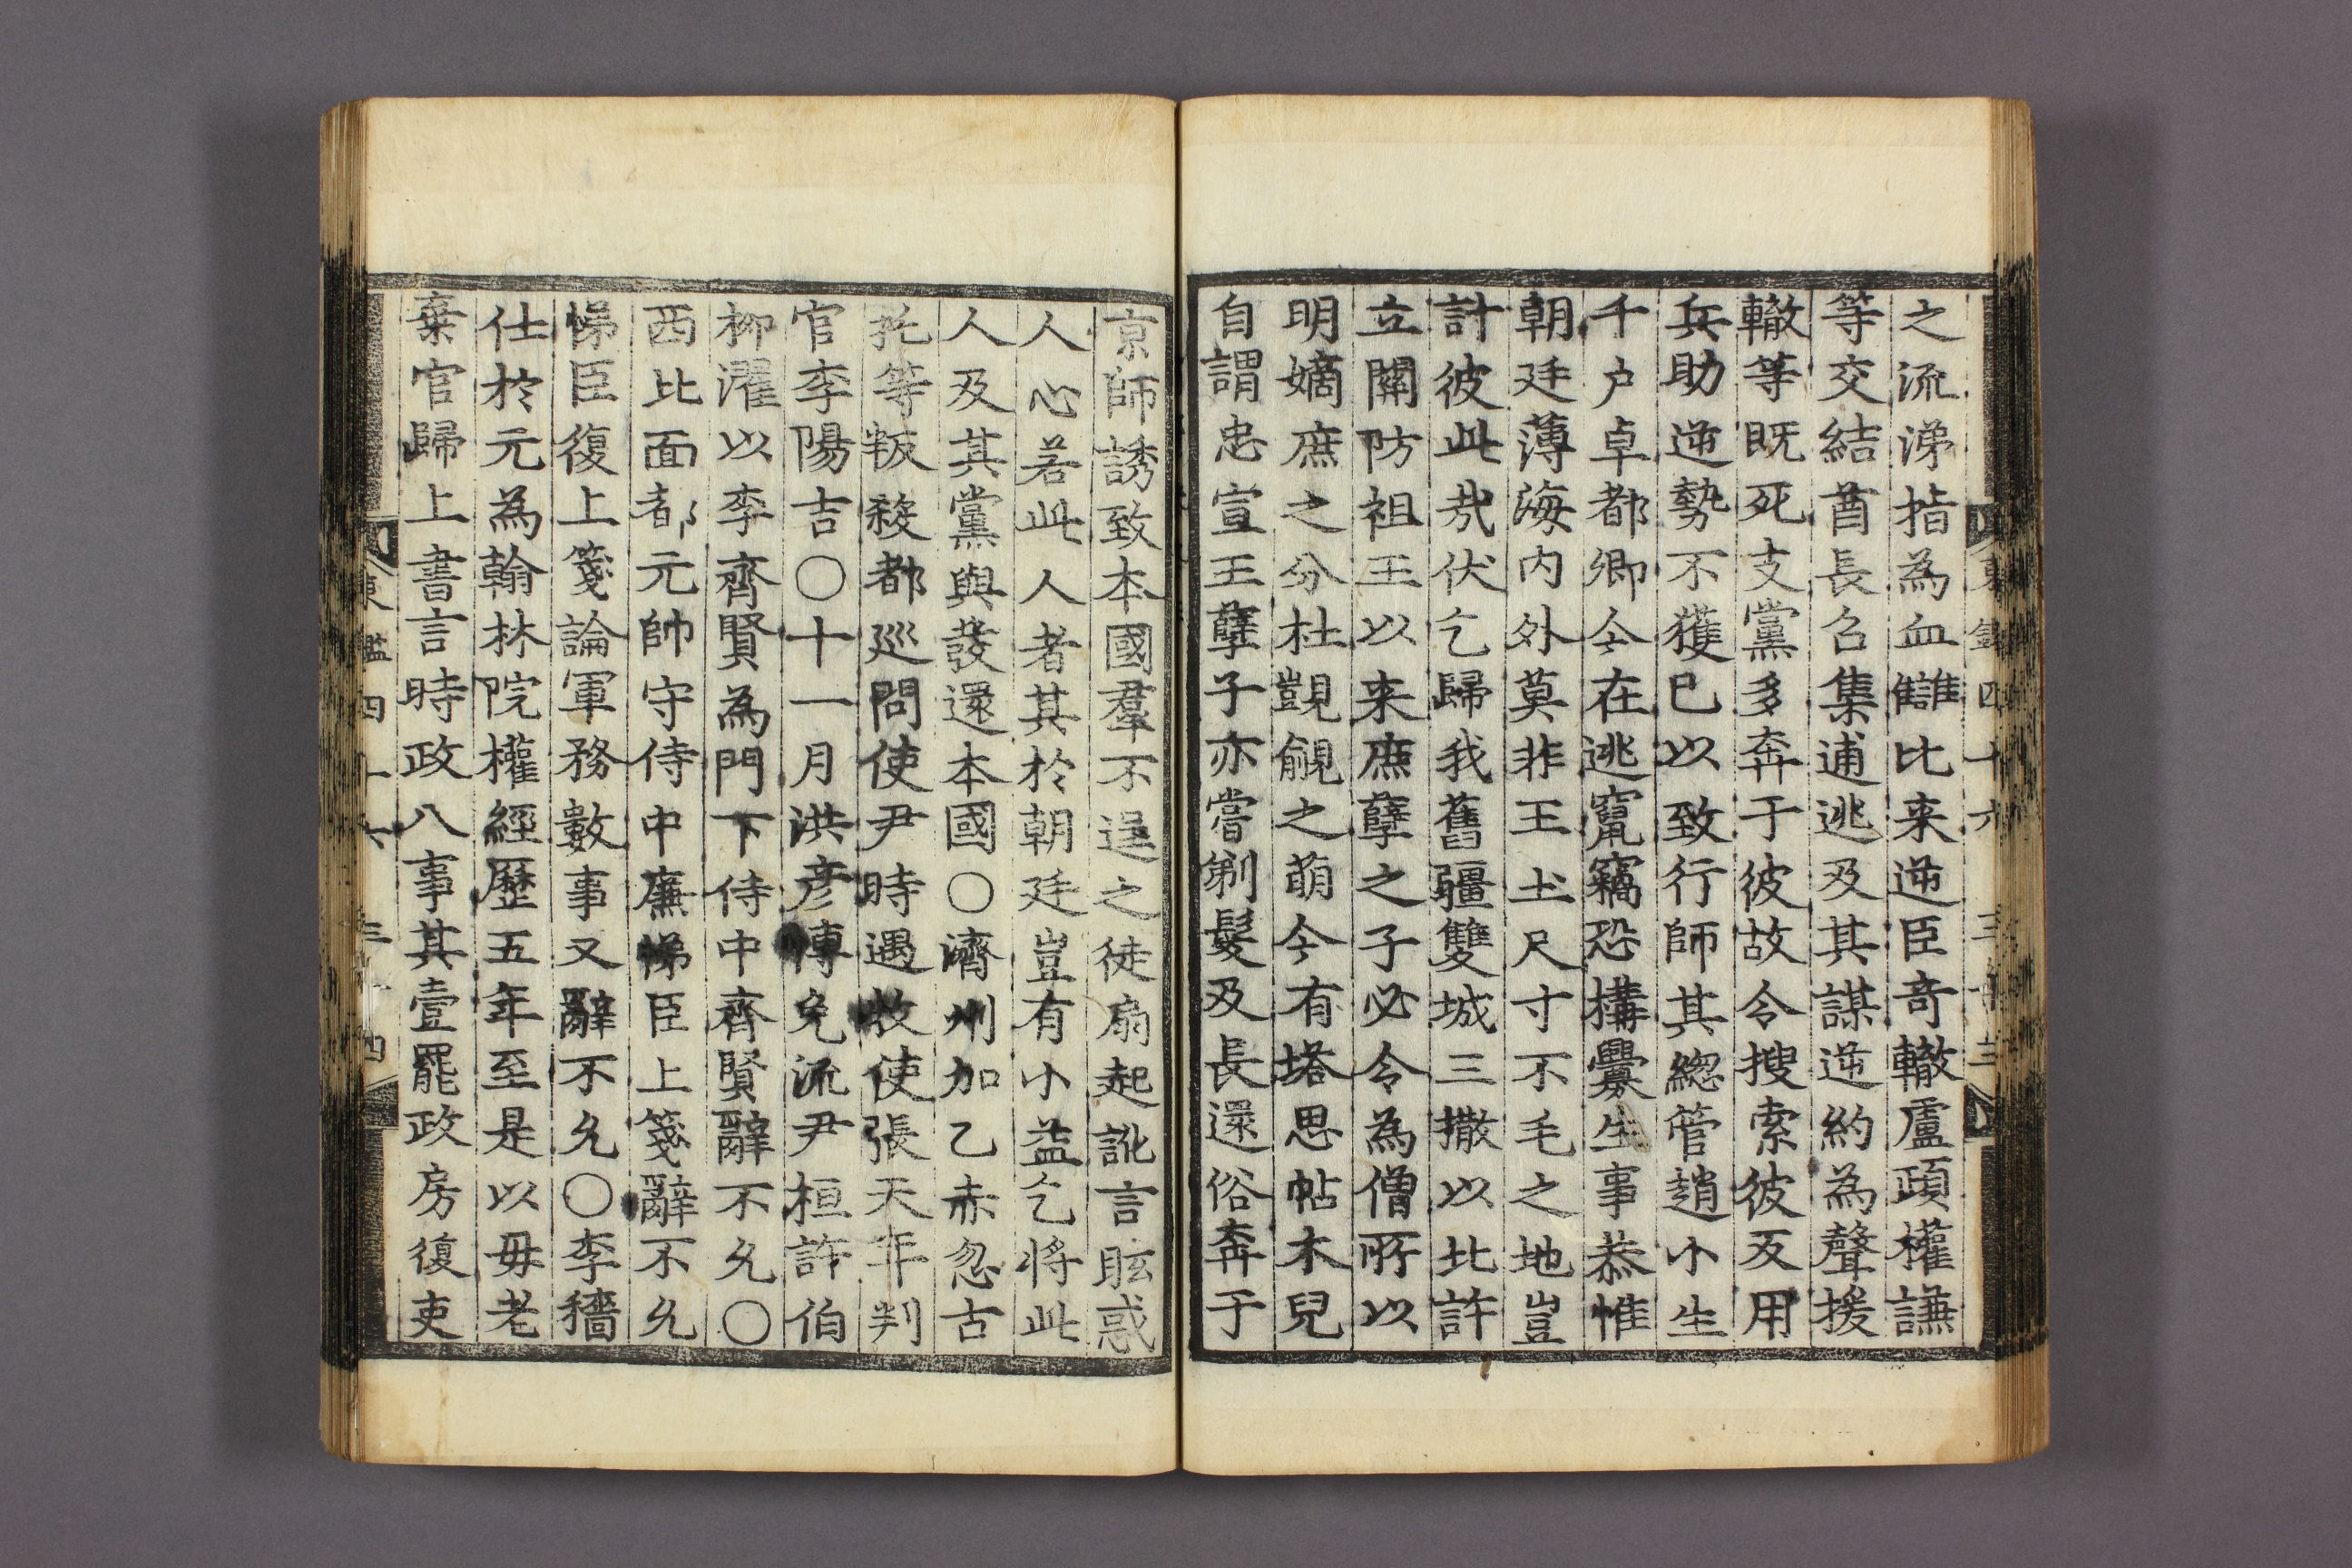 東鑑四十六 三十三
之流涕指為血讎比来逆臣奇轍盧頙權謙
等交結酋長召集逋逃及其謀逆約為聲援
轍等既死支黨多奔于彼故令搜索彼反用
兵助逆勢不獲已以致行師其緫管趙小生
千户卓都卿今在逃竄竊恐構釁生事恭惟
朝廷薄海內外莫非王土尺寸不毛之地豈
計彼此㢤伏乞歸我舊疆雙城三撒以北許
立關防祖王以来庶孽之子必令為僧所以
明嫡庶之分杜覬覦之萌今有塔思帖木兒
自謂忠宣王孽子亦嘗剃髮及長還俗奔于
京師誘致本國羣不逞之徒扇起訛言眩惑
人心若此人者其於朝廷豈有小益乞将此
人及其黨與發還本國○濟州加乙赤忽古
托等叛殺都巡問使尹時遇牧使張天年判
官李陽吉○十一月洪彥博免流尹桓許伯
柳濯以李齊賢為門下侍中齊賢辭不允○
西北面都元帥守侍中廉悌臣上箋辭不允
悌臣復上箋論軍務數事又辭不允○李穡
仕於元為翰林院權經歷五年至是以毋老
棄官歸上書言時政八事其壹罷政房復吏
東鑑四十六 三十四